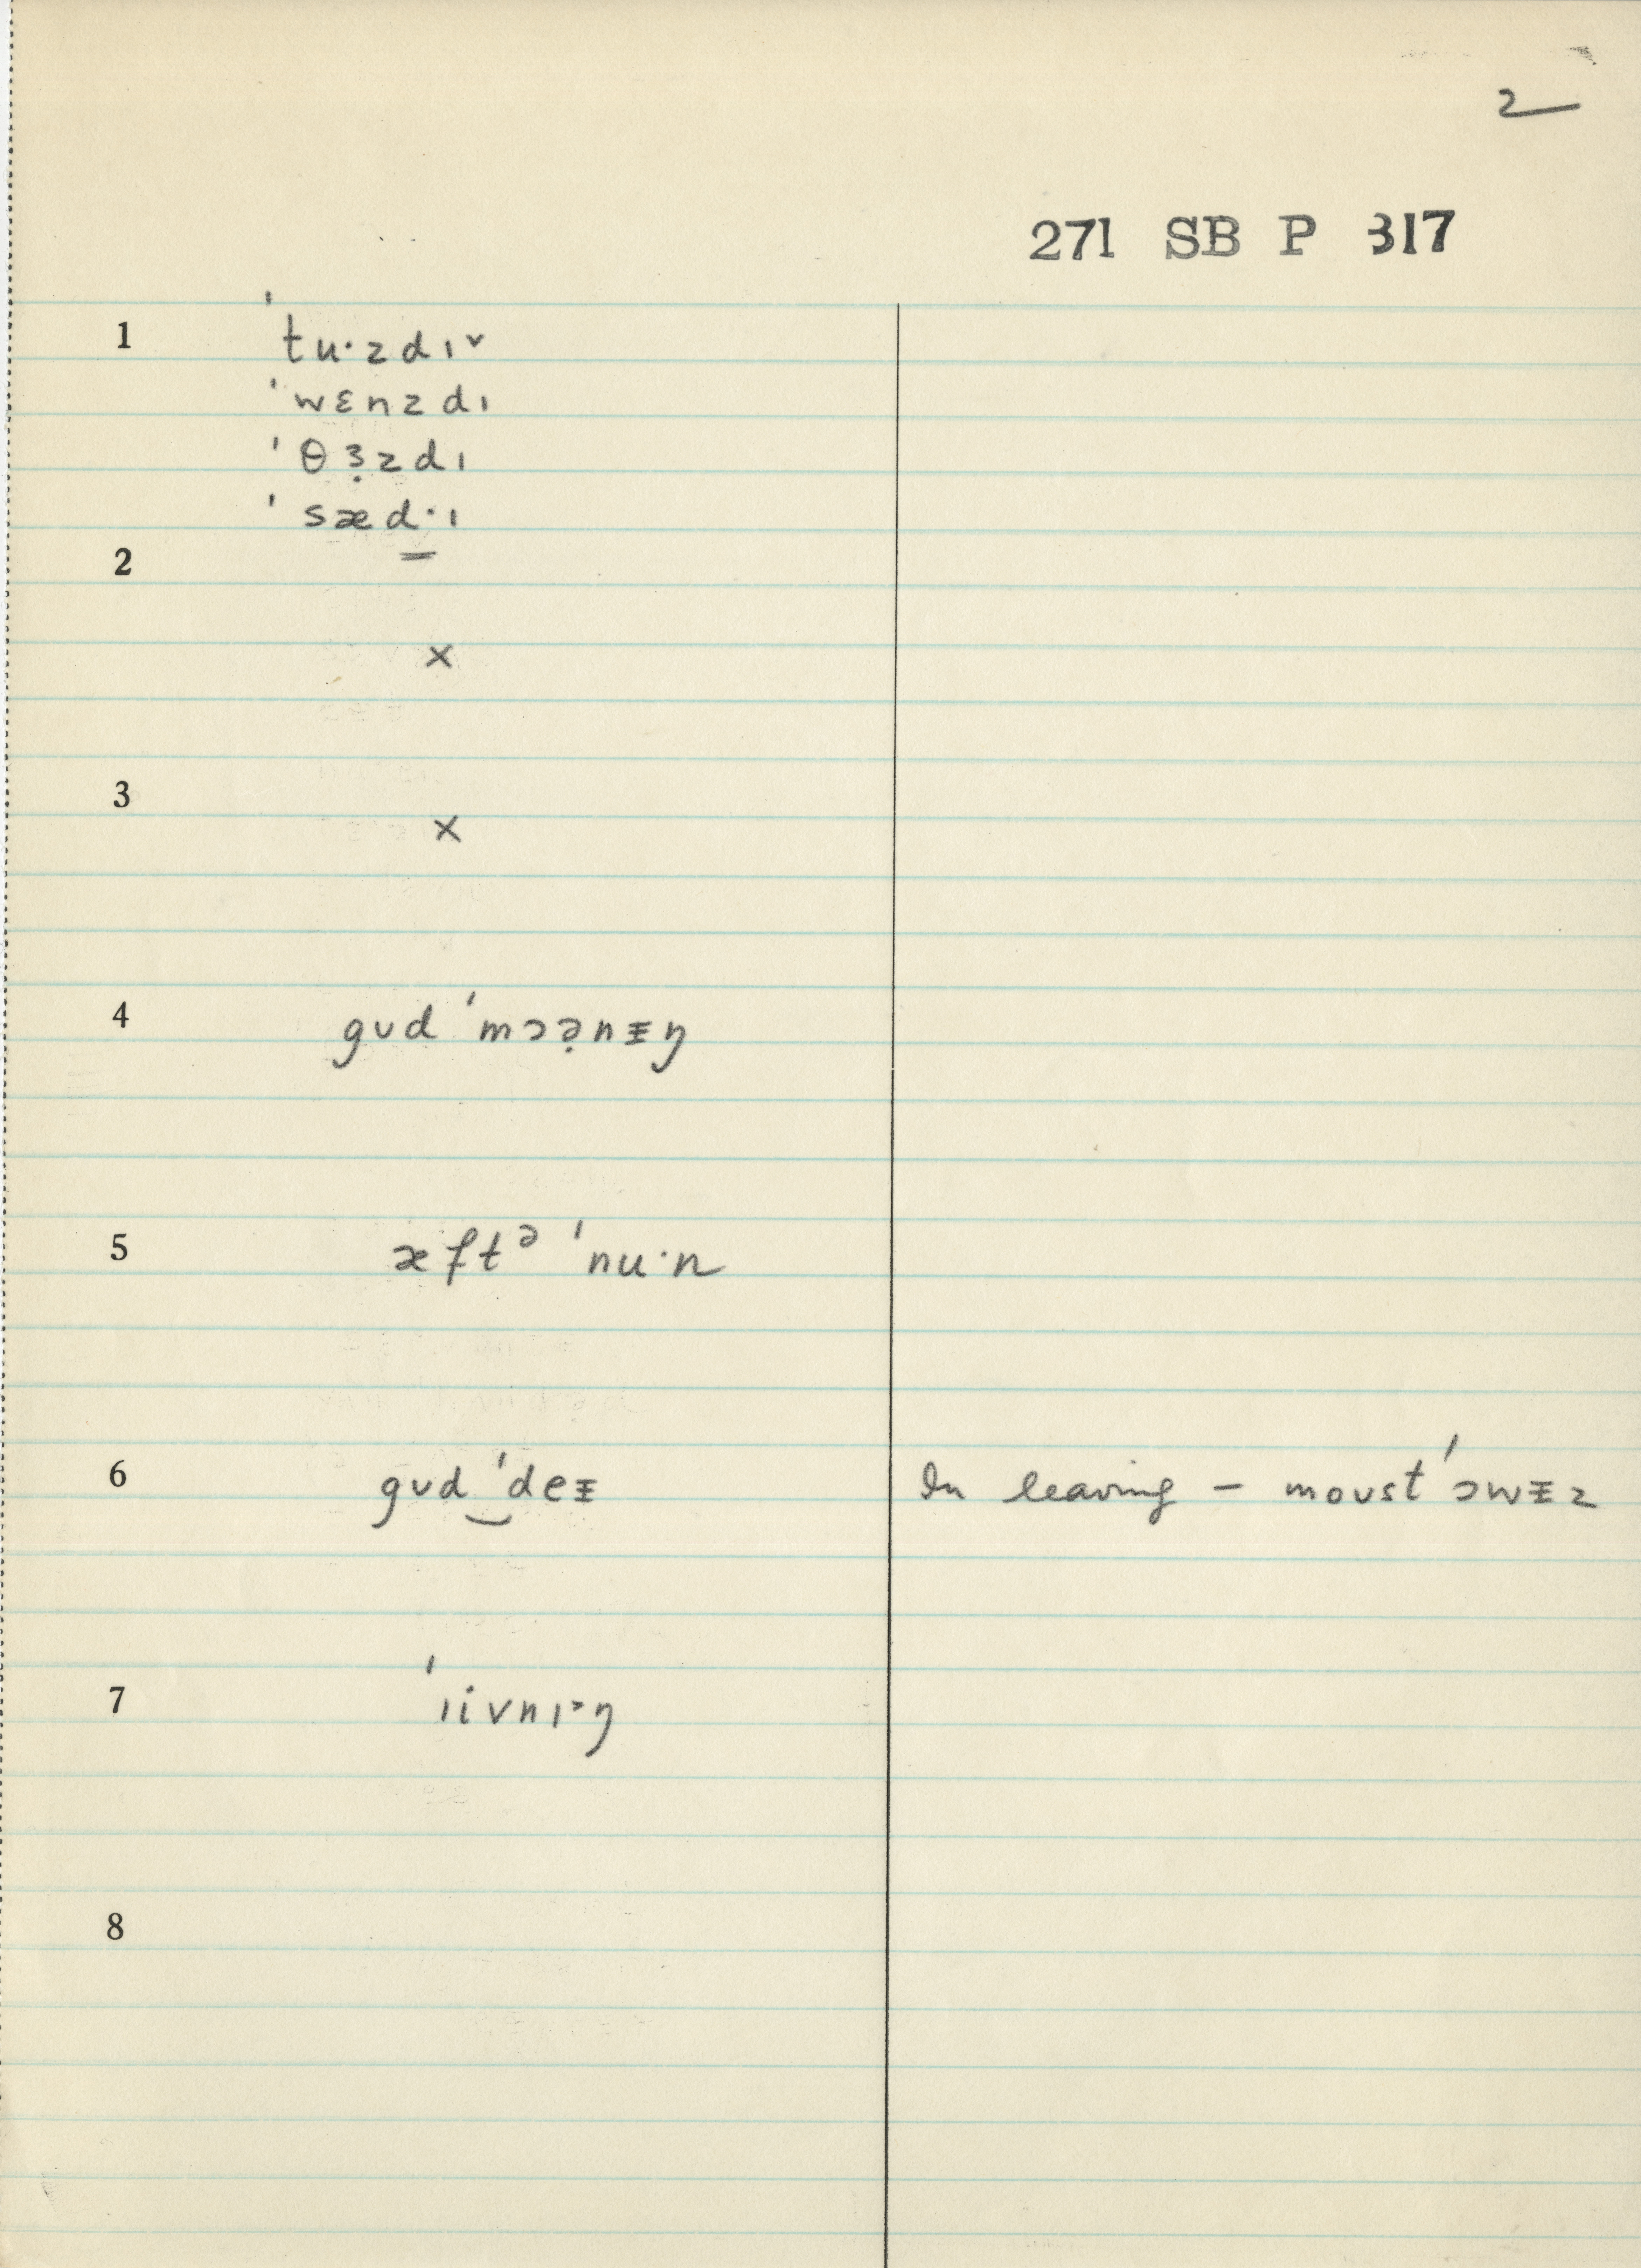 2
271 SB P 317
1 ˈtu·zdɪ˅
ˈwɛnzdɪ
ˈθɜ̣zdɪ
ˈsæd̠·ɪ
2
×
3
×
4 gʊd ˈmɔə̣nɪ̵ŋ
5 æftᵊ ˈnu·n
6 gʊd‿ˈdeɪ̵ In leaving – moʊst ˈɔwɪ̵z
7 ˈɪivnɪ˃ŋ
8